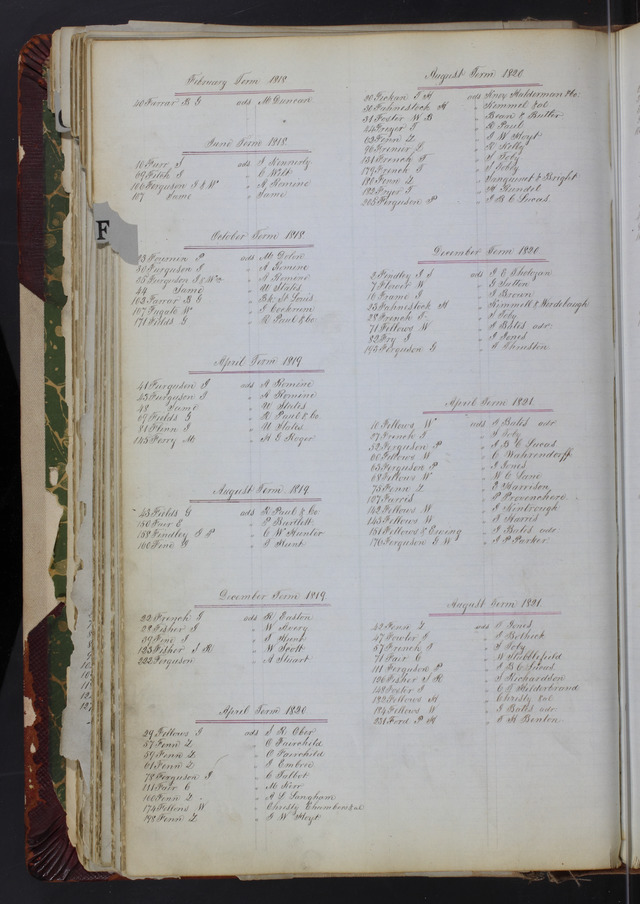 F
February Term 1818
40 Farrar B G ads McDuncan
June Term 1818
10 Farr J ads J Kennerly
69 Fitch J " C Wilt
106 Ferguson J & W " A Remine
107 Same " Same
October Term 1818
P ads M
30 Ferguson J " A Remine
35 Ferguson J & W " A Remone
44 Same " U States
103 Farrar B G " Bk St Louis
107 Fugate W " J Cockrum
171 Fields G " R Paul & Co
April Term 1819
41 Furguson J ads A Remine
43 Ferguson J " A Remone
48 Same " U States
69 Fields G " R Paul & Co
81 Flinn J " U States
145 Ferry M " H G Roger
August Term 1819
43 Fields G ads R Paul & Co
150 Fair E " P Bartlett
158 Fendley J P " C W Hunter
160 Fine P " J Hunt
December Term 1819
22 French G ads R Easton
28 Fisher J " W Avery
39 Fine J " J Hunt
123 Fisher J R " W Scott
222 Ferguson " A Stuart
April Term 1820
29 Fellows J ads J R Ober
57 Fenn Z " C Fairchild
59 Fenn Z " C Fairchild
61 Fenn Z " J Embree
78 Ferguson J " C Talbot
111 Farr C " M Kerr
160 Fenn Z " A L Langham
174 Fellows W " Christy Chambers & al
198 Fenn Z " J W Hoyt
August Term 1820
20 J H ads Knox Halderman & Co
30 Fahnestock H " Kemmel & al
31 Foster W B " Bean & Butler
44 Freyer T " R Paul
63 Fenn Z " J W Hoyt
90 Fremier L " R Kelly
131 French J " J Toby
179 French J " J Toby
180 Fenn Z " & Bright
182 Fryer T " H Rundel
205 Ferguson P " J B C Lucas
December Term 1820
2 Fendley J J ads J C
7 Flower W " G Sutton
10 Frame J " J Brown
23 Fahnestock H " Kimmell &
28 French J " J Toby
71 Fellows W " F Bates adr
82 Fry J " J Jones
195 Ferguson G " A Thruston
April Term 1821
10 Fellows W ads F Bates adr
27 French J " J Toby
52 Ferguson P " J B C Lucas
60 Fellows W " C Wahrendorff
65 Ferguson P " J Jones
68 Fellows W " W C Lane
75 Fenn Z " J Harrison
107 Farris " P Provenchere
142 Fellows W " A Kimbrough
145 Fellows W " J Harris
151 Fellows & Ewing " F Bates adr
170 Ferguson G W " A P Parker
August Term 1821
42 Fenn Z ads J Jones
47 Fowler J " J Bostwick
57 French J " J Toby
71 Fair C " W Stubblefield
111 Ferguson P " J B C Lucas
126 Fisher J R " J Richardson
148 Foster J " C J Hilderbrand
182 Fellows M " Christy & al
184 Fellows W " F Bates adr
231 Ford P H " T H Benton